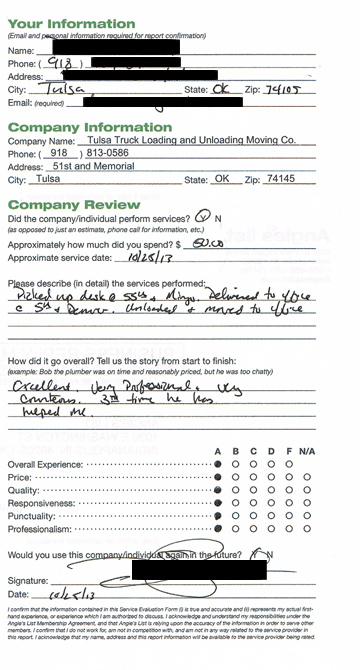 Your Information
(Email and personal information required for report confirmation)
Name:
Phone: ( 918 )
Address:
City: Tulsa State: OK Zip: 74105
Email: (required)
Company Information
Company Name: Tulsa Truck Loading and Unloading Moving Co.
Phone: ( 918 ) 813-0586
Address: 51st and Memorial
City: Tulsa State: OK Zip: 74145
Company Review
Did the company/individual perform services? Y N
(as opposed to just an estimate, phone call for information, etc.)
Approximately how much did you spend? $ 80.00
Approximate service date: 10/25/13
Please describe (in detail) the services performed:
Picked up desk @ 55th & Mingo. Delivered to office
@ 5th & Denver. Unloaded & moved to office
How did it go overall? Tell us the story from start to finish:
(example: Bob the plumber was on time and reasonably priced, but he was too chatty)
Excellent. Very Professional & very
courteous. 3rd time he has
helped me.
A B C D F N/A
Overall Experience:
Price:
Quality:
Responsiveness:
Punctuality:
Professionalism:
Would you use this company/individual again in the future? Y N
Signature:
Date: 10/25/13
I confirm that the information contained in this Service Evaluation Form (i) is true and accurate and (ii) represents my actual first-
hand experience, or experience which I am authorized to discuss. I acknowledge and understand my responsibilities under the
Angie's List Membership Agreement, and that Angie's List is relying upon the accuracy of the information in order to serve other
members. I confirm that I do not work for, am not in competition with, and am not in any way related to the service provider in
this report. I acknowledge that my name, address and this report information will be available to the service provider being rated.